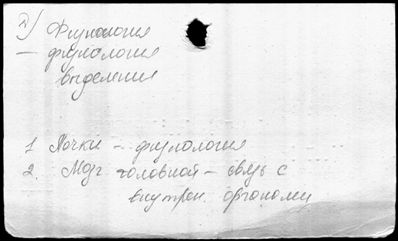 2) Физиология
— физиология
выделения
1 Почки — физиология
2. Мозг головной — связь с
внутрен. органами